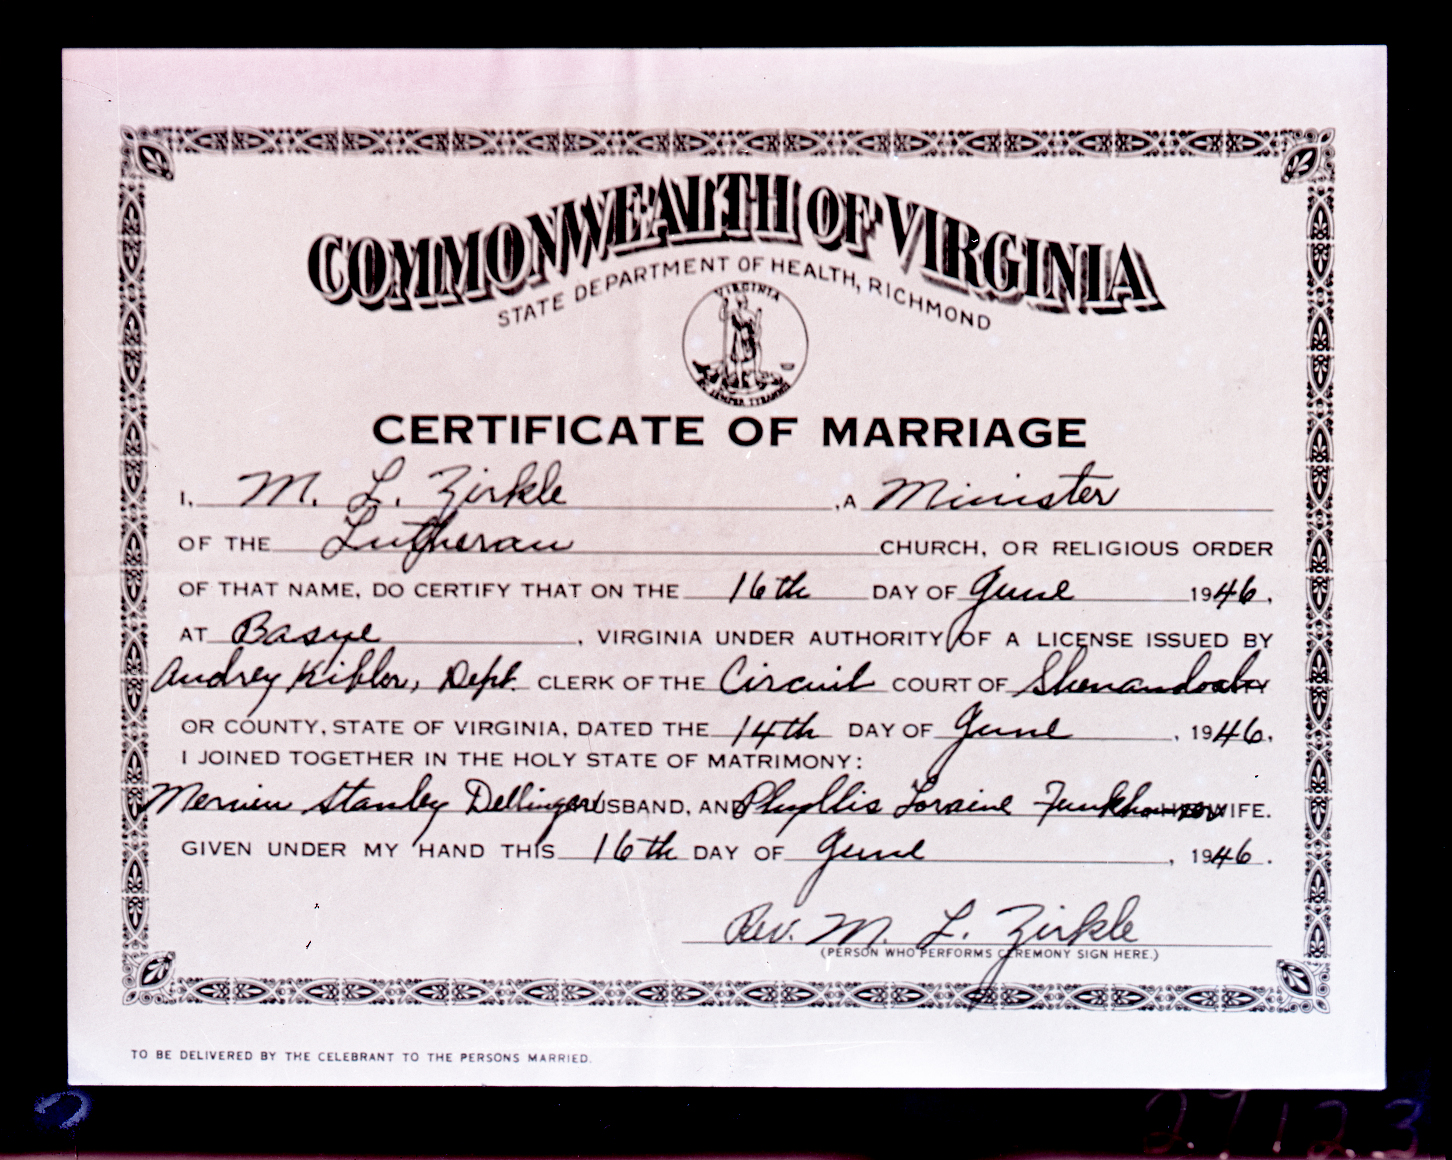 COMMONWEALTH OF VIRGINIA
STATE DEPARTMENT OF HEALTH, RICHMOND
VIRGINIA
SIC SEMPER TYRANNIS
CERTIFICATE OF MARRIAGE
I, M. L. Zirkle , A Minister
OF THE Lutheran CHURCH, OR RELIGIOUS ORDER
OF THAT NAME, DO CERTIFY THAT ON THE 16th DAY OF June 1946,
AT Basye , VIRGINIA UNDER AUTHORITY OF A LICENSE ISSUED BY
Audrey Kibler, Dept. CLERK OF THE Circuit COURT OF Shenandoah
OR COUNTY, STATE OF VIRGINIA, DATED THE 14th DAY OF June , 1946,
I JOINED TOGETHER IN THE HOLY STATE OF MATRIMONY:
Stanley Dellinger HUSBAND, AND Phyllis Loraine Funkhouser HIS WIFE.
GIVEN UNDER MY HAND THIS 16th DAY OF June , 1946.
Rev. M. L. Zirkle
(PERSON WHO PERFORMS CEREMONY SIGN HERE.)
TO BE DELIVERED BY THE CELEBRANT TO THE PERSONS MARRIED.
27123